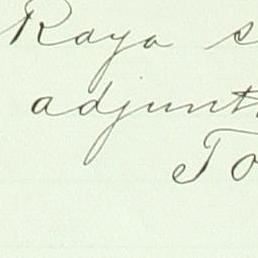 Raya s
adjunt
To